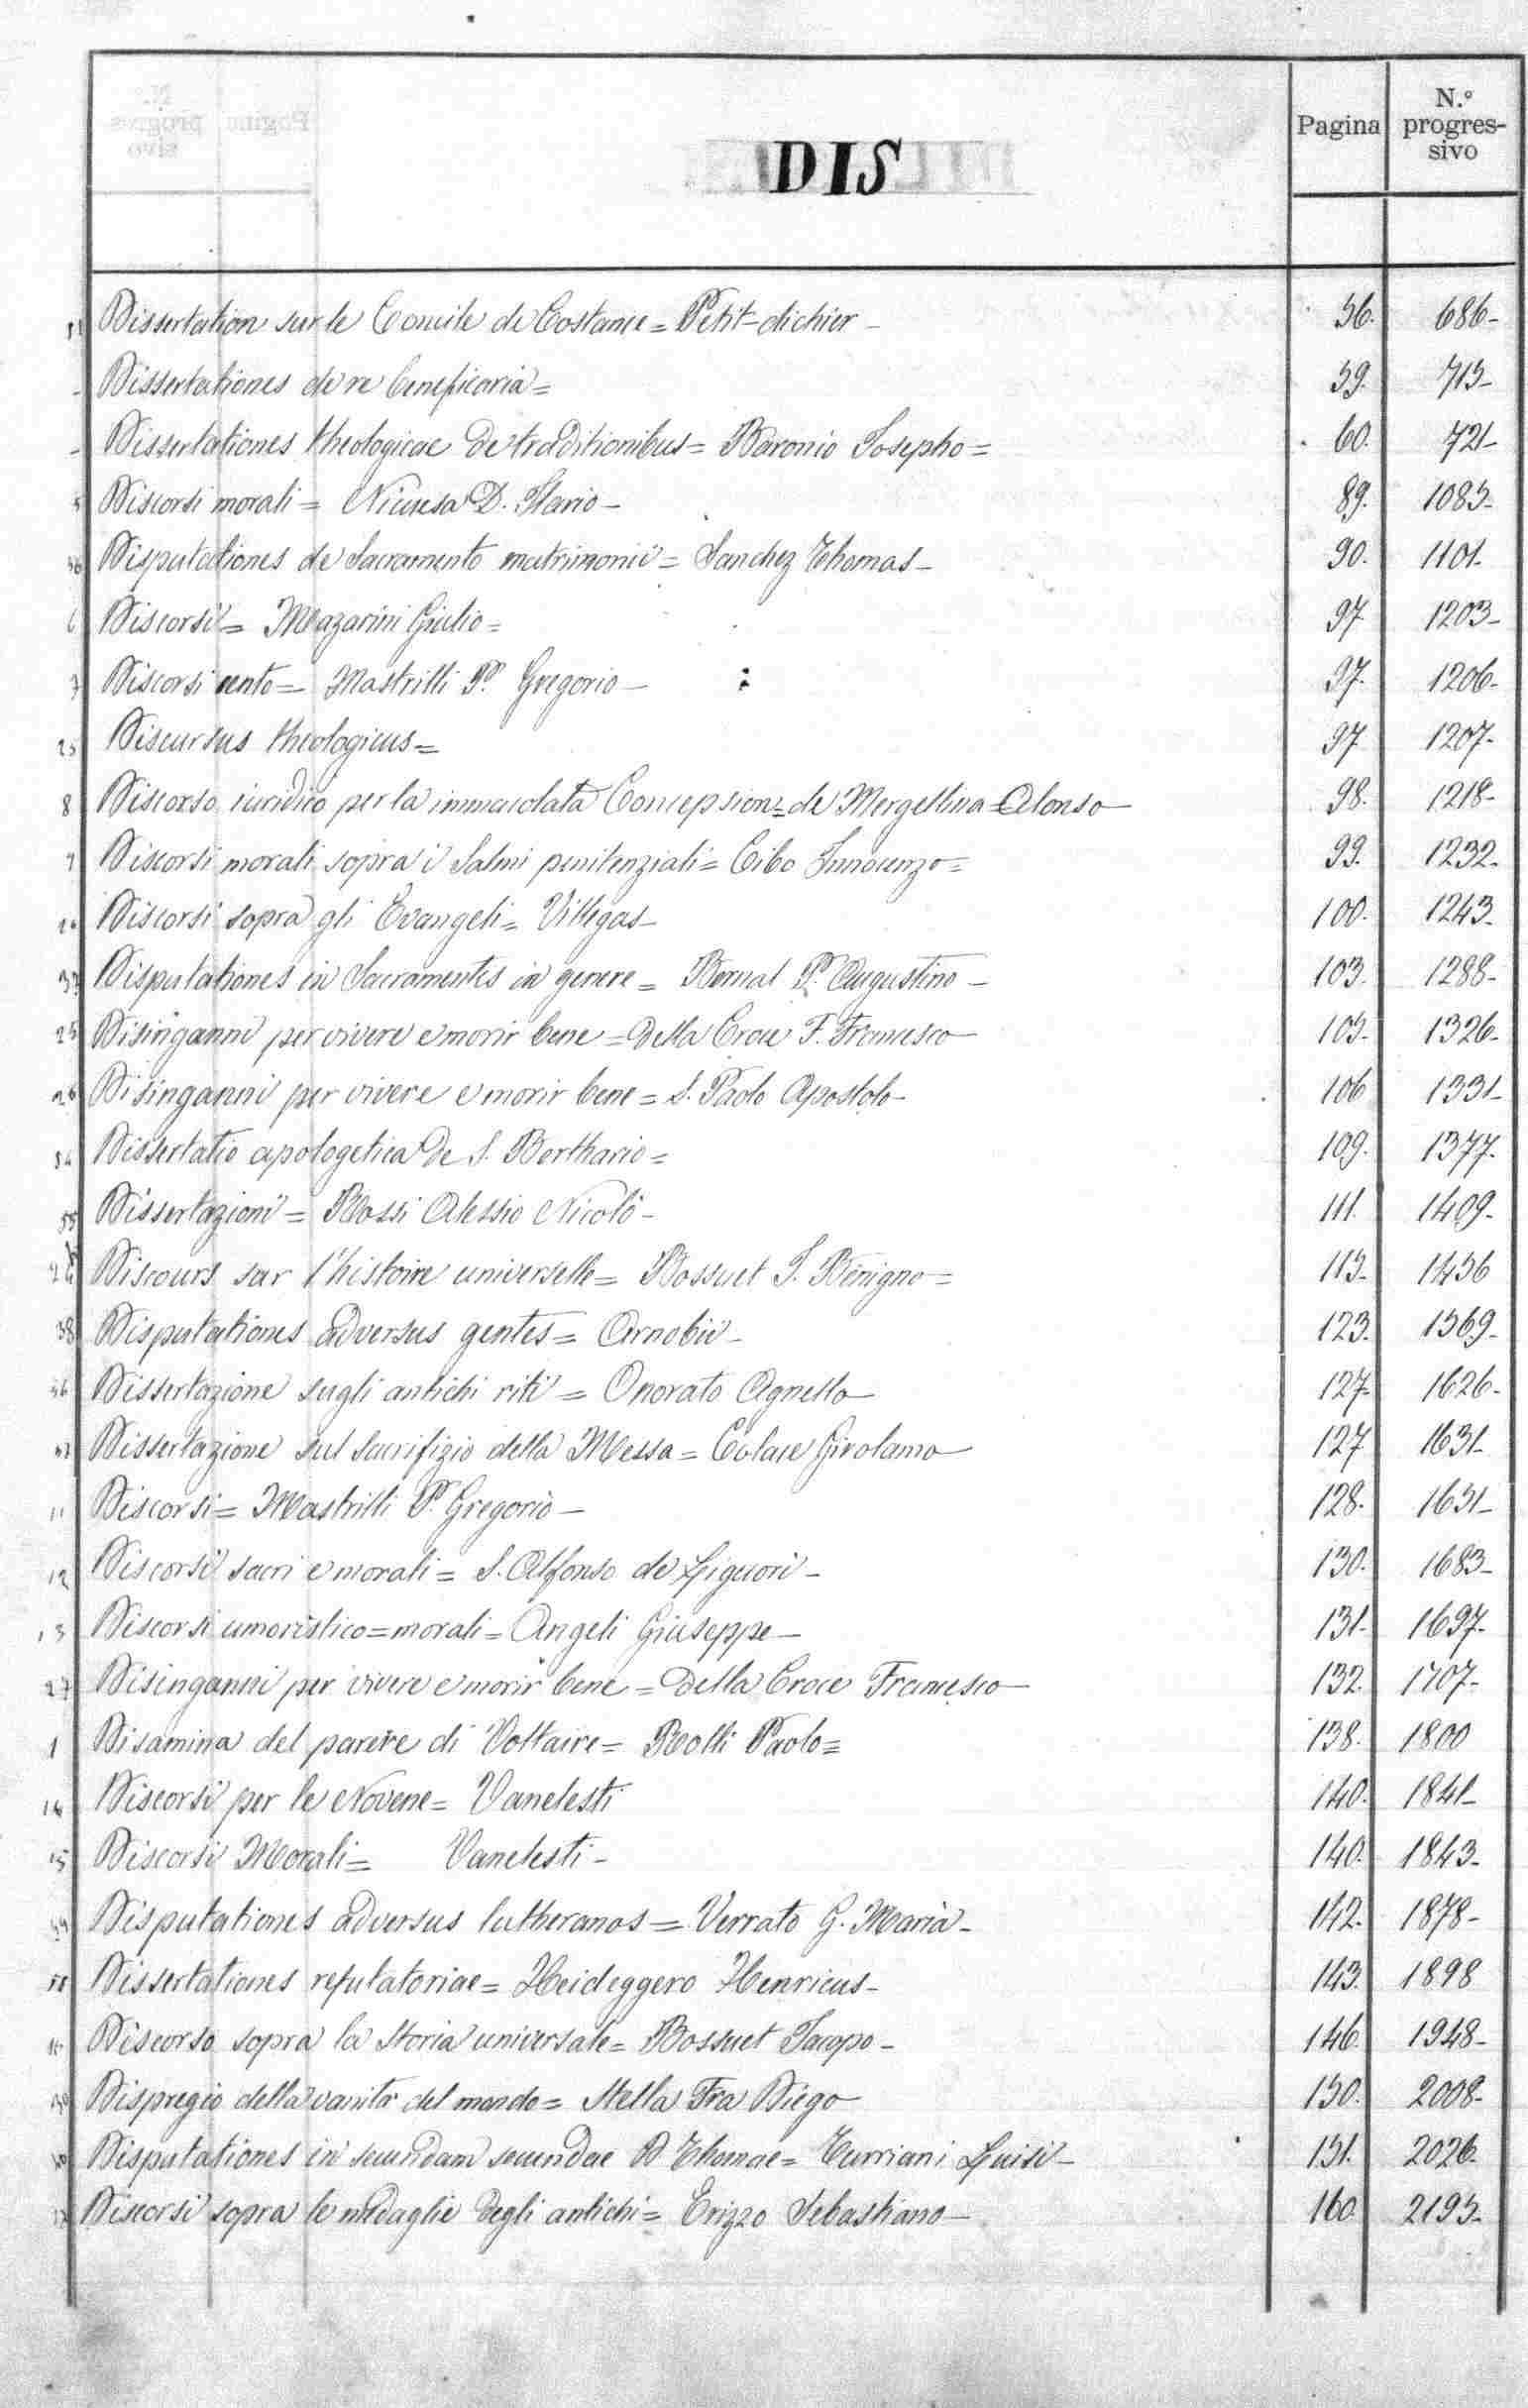 Pagina
N.º progres-
sivo
DIS
Dissertation sur le Concile de Costance = Petit-dichier - 56. 686-
Dissertationes de re beneficaria = 59. 713-
Dissertationes theologicae de traditionibus = Baronio Josepho = 60. 721-
5 Discorsi morali = D. Ilario - 89. 1085-
36 Disputationes de Sacramento matrimonii = Sanchez Thomas - 90. 1101-
6 Discorsi = Mazarini Giulio = 97 1203-
7 Discorsi cento = Mastrilli P. Gregorio - 97. 1206-
23 Discursus theologicus = 97 1207-
8 Discorso iuridico per la immacolata Concepsion = de Mergellina Alonso 98. 1218-
Discorsi morali sopra i Salmi penitenziali = Cibo Innocenzo = 99. 1232-
Discorsi sopra gli Evangeli = Villegas - 100. 1243-
37 Disputationes in Sacramentis in genere = Bernal P. Augustino - 103. 1288-
25 Disinganni per vivere e morir bene = della Croce F. Francesco 105- 1326-
26 Disinganni per vivere e morir bene = S. Paolo Apostolo - 106 1331-
Dissertatio apologetica de S. Berthario = 109. 1377-
55 Dissertazioni = Rossi Alessio Nicolò - 111. 1409-
Discours sur l'histoire universelle = Bossuet J. Benigno = 113- 1436
38 Disputationes adversus gentes = Arnobii - 123. 1569-
56 Dissertazione sugli antichi riti = Onorato Agnello 127- 1626-
Dissertazione sul Sacrifizio della Messa = Colace Girolamo 127 1631-
11 Discorsi = Mastrilli P. Gregorio - 128. 1651-
12 Discorsi sacri e morali = S. Alfonso de Liguori - 130. 1683-
13 Discorsi umoristico = morali = Angeli Giuseppe - 131- 1697-
27 Disinganni per vivere e morir bene = della Croce Francesco 132. 1707-
1 Disamina del parere di Voltaire = Rolli Paolo = 138. 1800
14 Discorsi per le Novene = Vanelesti 140. 1841-
15 Discorsi Morali = Vanelesti - 140. 1843-
39 Disputationes adversus lutheranos = Verrato G. Maria - 142. 1878-
58 Dissertationes refutatoriae = Heideggero Henricus - 143. 1898
Discorso sopra la Storia universale = Bossuet Jacopo - 146. 1948-
Dispregio della vanità del mondo = Stella Fra Diego 150. 2008-
Disputationes in secundam secundae D Thomae = Turriani Luisi - 151. 2026-
Discorsi sopra le medaglie degli antichi = Erizzo Sebastiano - 160 2195-